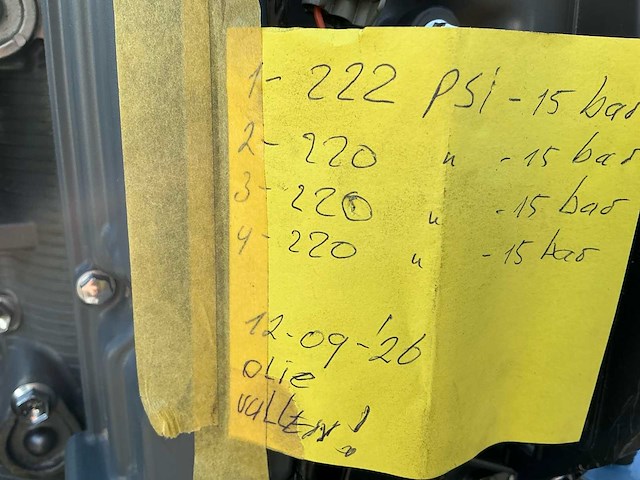 1- 222 PSi - 15 bar
2- 220 " - 15 bar
3- 220 " - 15 bar
4- 220 " - 15 bar
12-09-'26
oLie
vullen!